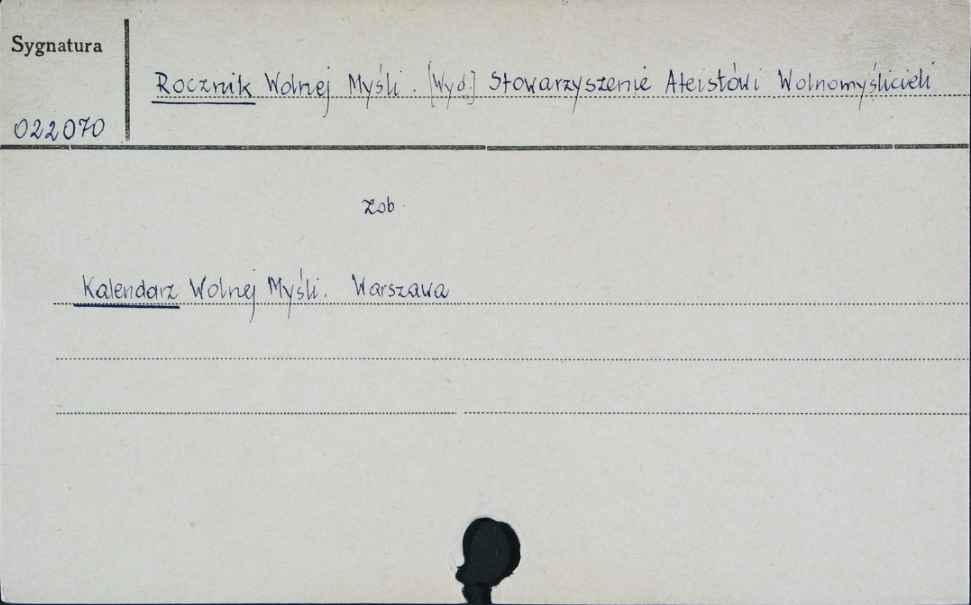 Sygnatura
Rocznik Wolnej Myśli. [Wyd.] Stowarzyszenie Ateistów i Wolnomyślicieli
022070
Zob.
Kalendarz Wolnej Myśli. Warszawa